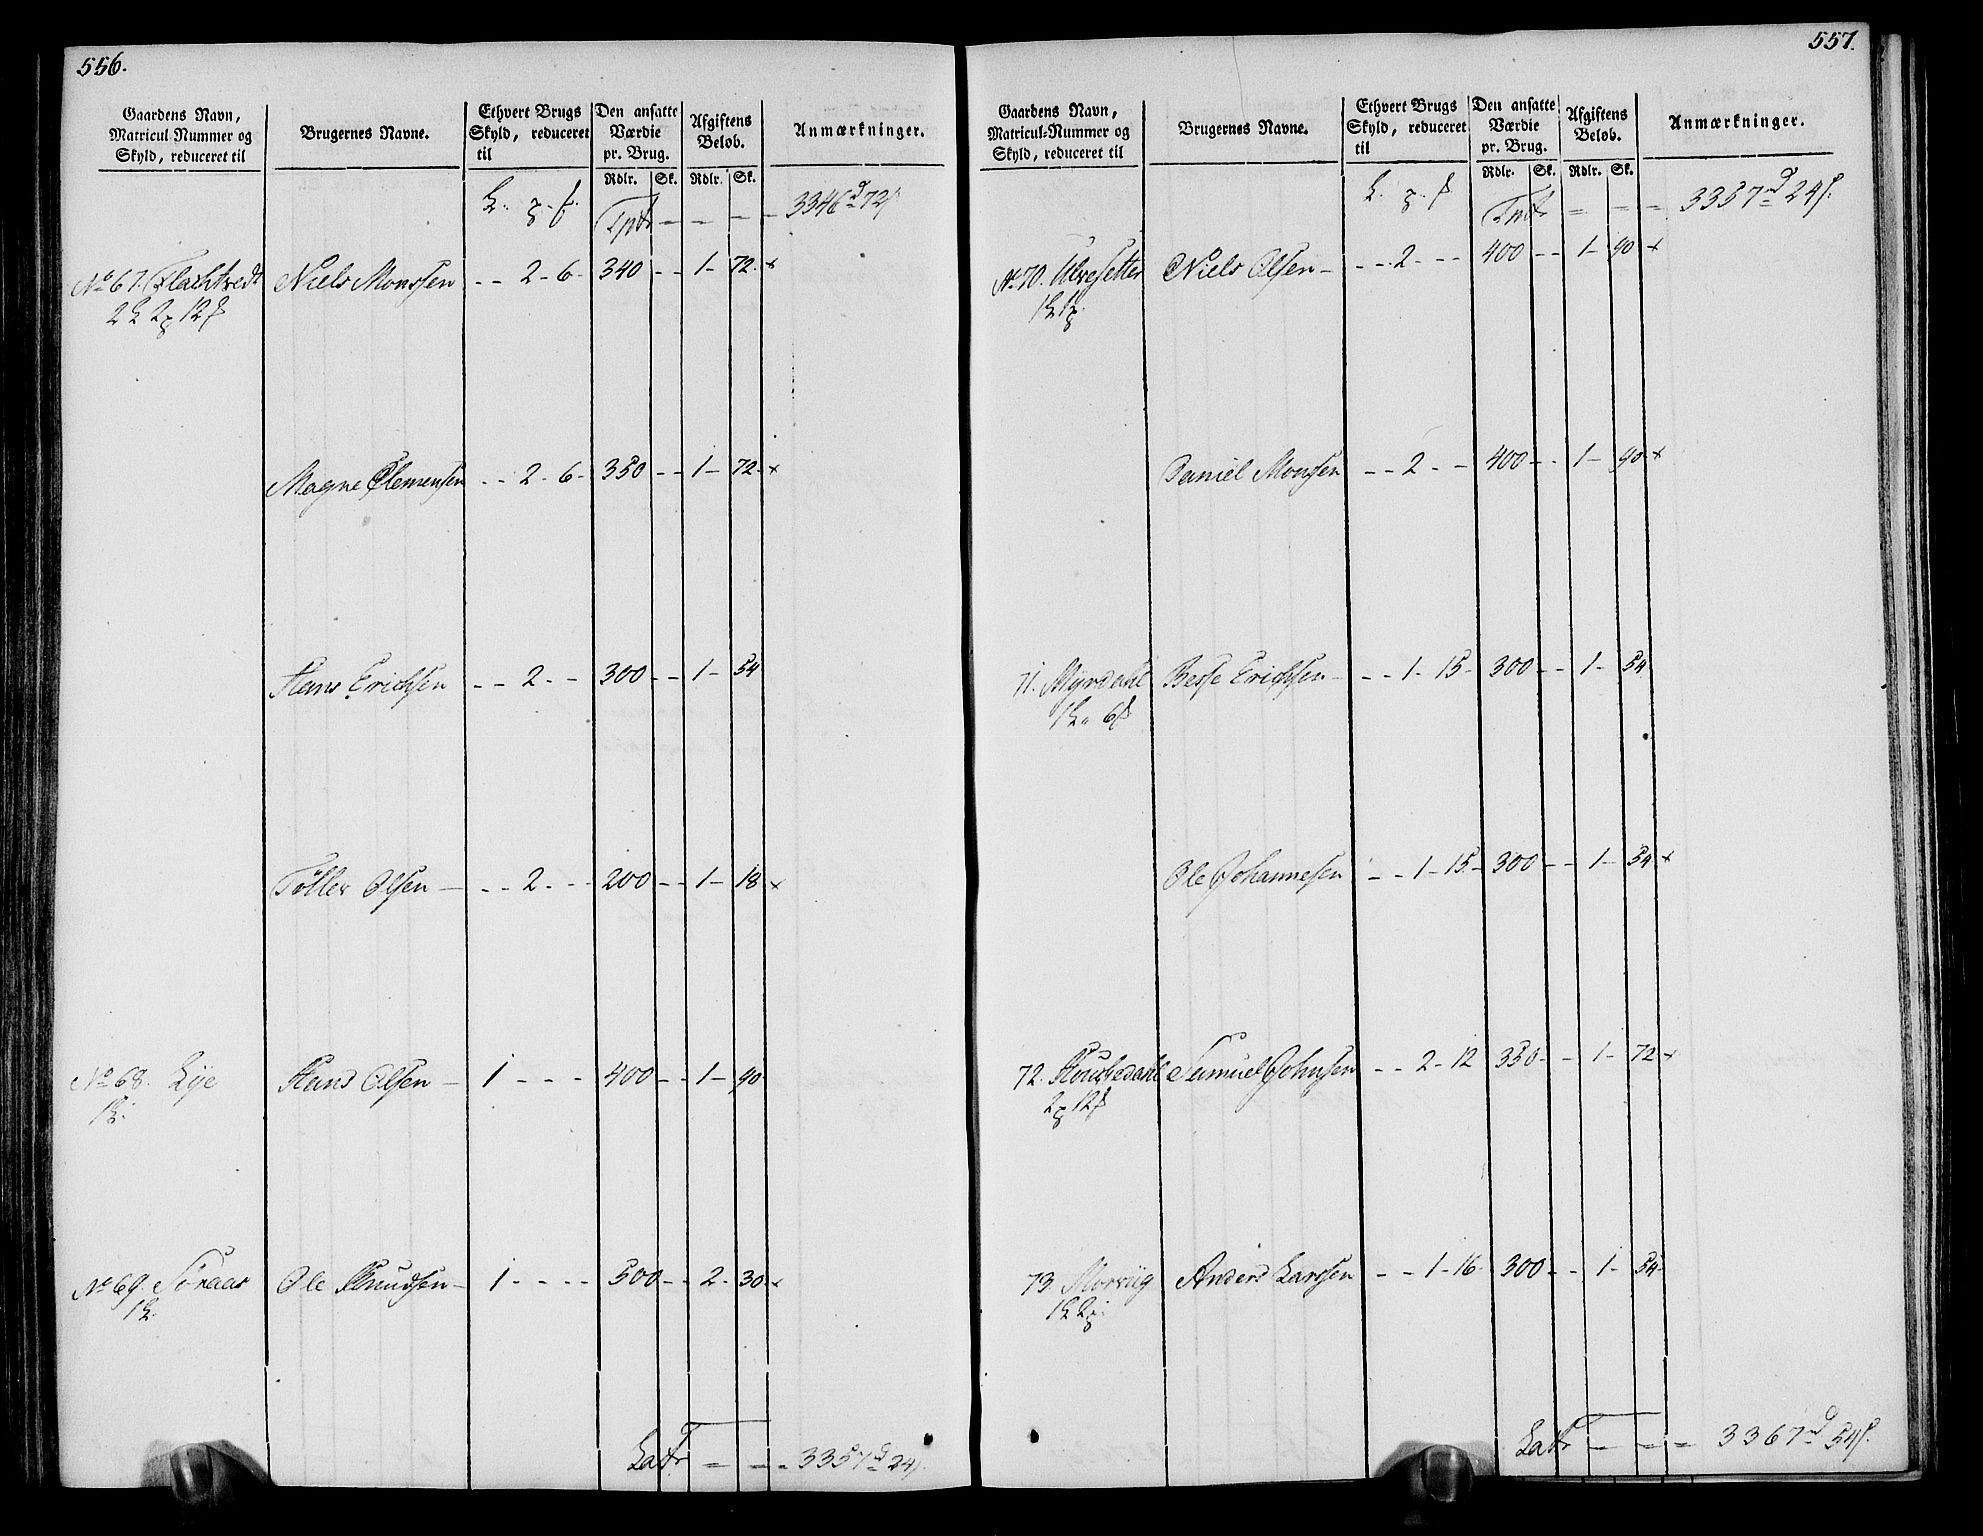 556.
Gaardens Navn, Matricul Nummer og Skyld, reduceret til
Brugernes Navne.
Ethvert Brugs Skyld, reduceret til
Den ansatte Værdie pr. Brug.
Afgiftens Beløb.
Anmærkninger.
Rdlr. Sk. Rdlr. Sk.
Tpt - - - - 3346 d 72 s
No 67. Flachtvedt Niels Monssen - - 2 - 6 - 340 - - 1 - 72 - x
2 L 2 p 12 f
Magne Clemensen - - 2 - 6 - 350 - - 1 - 72 - x
Hans Erichsen - - 2 - - 300 - - 1 - 54
Töller Olsen - - - 2 - - - 200 - - 1 - 18 x
No 68. Lÿe Hans Olsen - 1 - - - 400 - - 1 - 90
1 L.
No 69. Söraas Ole Knudsen - 1 - - - - 500 - - 2 - 30 - x
1 L.
Latr = - - - 3357 d 24 s.
557.
Gaardens Navn, Matricul-Nummer og Skyld, reduceret til
Brugernes Navne.
Ethvert Brugs Skyld, reduceret til
Den ansatte Værdie pr. Brug.
Afgiftens Beløb.
Anmærkninger.
Rdlr. Sk. Rdlr. Sk.
Tpt = = = 3357 d 24 s.
No 70. Ulvesetter Niels Olsen - - - - 2 - - - 400 - - 1 - 90 x
1 L 1 p
Daniel Monssen - - 2 - - 400 - - 1 - 90 - x
71. Myrdahl Besse Erichsen - - - 1 - 15 - 300 - - 1 - 54
1 L. 6 f
Ole Johannesen - - 1 - 15 - 300 - - 1 - 54 x
72. Samuel Johnsen - - 2 - 12 350 - - 1 - 72 - x
2 p 12 f
73. Morviig Anders Larssen - - 1 - 16 - 300 - - 1 - 54 -
1 L 2 p.
Latr = = = 3367 d 54 s.